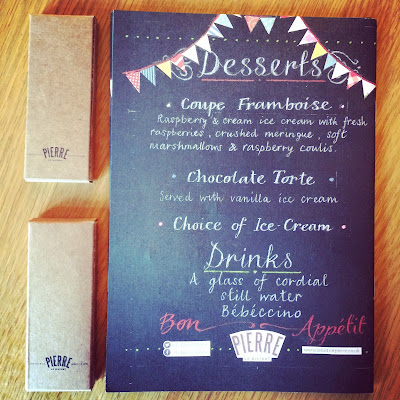 Desserts
Coupe Framboise
Raspberry & cream ice cream with fresh
raspberries, crushed meringue, soft
marshmallows & raspberry coulis.
Chocolate Torte
Served with vanilla ice cream
Choice of Ice-Cream
Drinks
A glass of cordial
still water
Bébéccino
Bon Appétit
PIERRE
PIERRE
PIERRE